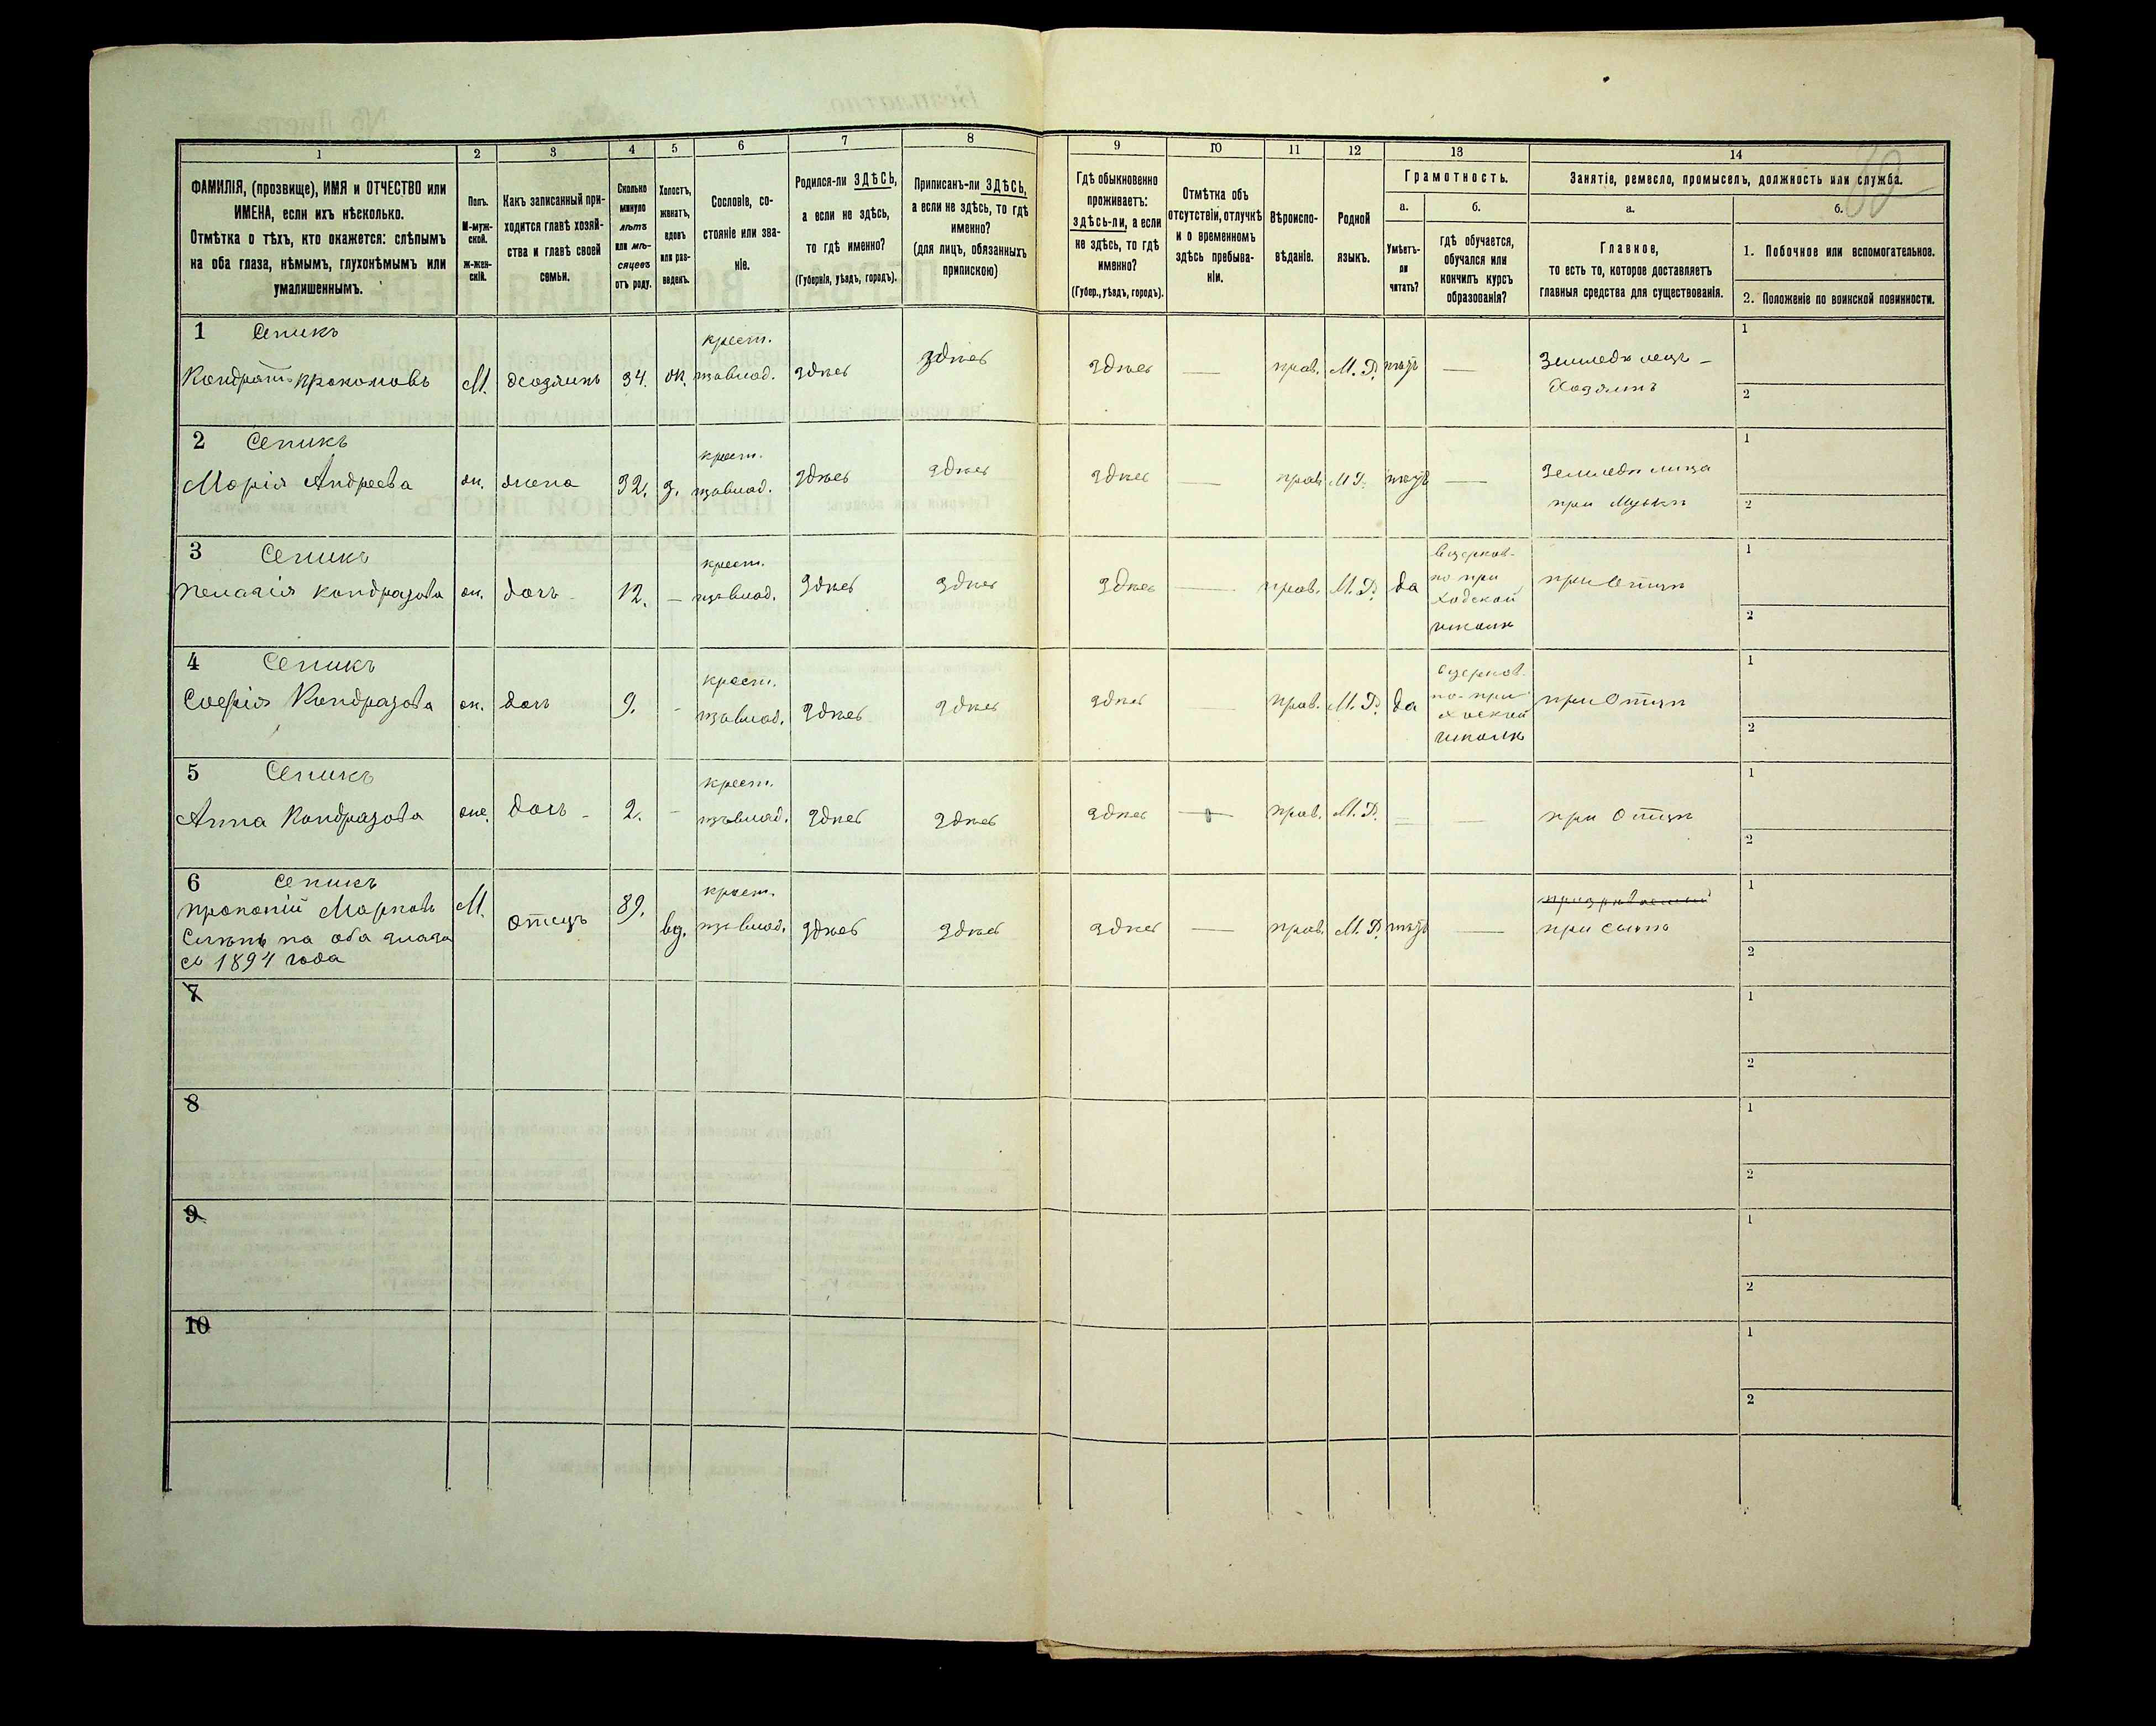 1 2 3 4 5 6 7 8 9 10 11 12 13 14
ФАМИЛІЯ, (прозвище), ИМЯ и ОТЧЕСТВО или
ИМЕНА, если ихъ нѣсколько.
Отмѣтка о тѣхъ, кто окажется: слѣпымъ
на оба глаза, нѣмымъ, глухонѣмымъ или
умалишеннымъ.
Полъ.
М-муж-
ской.
ж-жен-
скій.
Какъ записанный при-
ходится главѣ хозяй-
ства и главѣ своей
семьи.
Сколько
минуло
лѣтъ
или мѣ-
сяцевъ
отъ роду.
Холостъ,
женатъ,
вдовъ
или раз-
веденъ.
Сословіе, со-
стояніе или зва-
ніе.
Родился-ли ЗДѢСЬ,
а если не здѣсь,
то гдѣ именно?
(Губернія, уѣздъ, городъ).
Приписанъ-ли ЗДѢСЬ,
а если не здѣсь, то гдѣ
именно?
(для лицъ, обязанныхъ
припискою)
Гдѣ обыкновенно
проживаетъ:
здѣсь-ли, а если
не здѣсь, то гдѣ
именно?
(Губер., уѣздъ, городъ).
Отмѣтка объ
отсутствіи, отлучкѣ
и о временномъ
здѣсь пребыва-
ніи.
Вѣроиспо-
вѣданіе.
Родной
языкъ.
Грамотность.
а.
Умѣетъ-
ли
читать?
б.
гдѣ обучается,
обучался или
кончилъ курсъ
образованія?
Занятіе, ремесло, промыселъ, должность или служба.
а.
Главное,
то есть то, которое доставляетъ
главныя средства для существованія.
б.
1. Побочное или вспомогательное.
2. Положеніе по воинской повинности.
1 Сепикъ
Кондратъ Прокоповъ М. хозяинъ 34. ж. крест.
изъ влад. здѣсь здѣсь здѣсь — прав. М. Р. нѣтъ — Земледѣлецъ –
Хозяинъ
1
2
2 Сепикъ
Марія Андреева ж. жена 32. з. крест.
изъ влад. здѣсь здѣсь здѣсь — прав М Р. нѣтъ — Земледѣлица
при Мужѣ
1
2
3 Сепикъ
Пелагія Кондратова ж. дочь 12. — крест.
изъ влад. здѣсь здѣсь здѣсь — прав. М. Р. да вцерков-
но при
ходской
школѣ
при Отцѣ
1
2
4 Сепикъ
Софія Кондратова ж. дочь 9. - крест.
изъ влад. здѣсь здѣсь здѣсь — прав. М. Р. да вцерков-
но-при
школѣ
при Отцѣ
1
2
5 Сепикъ
Анна Кондратова же. дочь - 2. - крест.
изъ влад. здѣсь здѣсь здѣсь — прав. М. Р. — — при Отцѣ
1
2
6 Сепикъ
Прокопій Марковъ
Слѣпъ на оба глаза
съ 1894 года
М. Отецъ 89. вд. крест.
изъ влад. здѣсь здѣсь здѣсь — прав. М. Р. нѣтъ —
при сынѣ
1
2
7
1
2
8
1
2
9
1
2
10
1
2